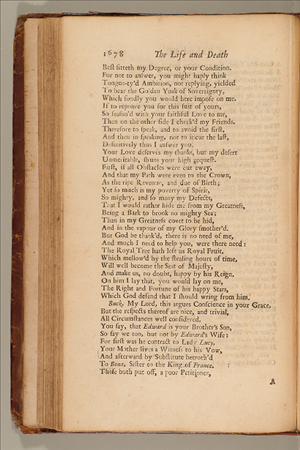 1678 The Life and Death
Best fitteth my Degree, or your Condition.
For not to answer, you might haply think
Tongue-ty'd Ambition, not replying, yielded
To bear the Golden Yoak of Soveraignty,
Which fondly you would here impose on me.
If to reprove you for this suit of yours,
So season'd with your faithful Love to me,
Then on the other side I check'd my Friends.
Therefore to speak, and to avoid the first,
And then in speaking, not to incur the last,
Definitively thus I answer you.
Your Love deserves my thanks, but my desert
Unmeritable, shuns your high request.
First, if all Obstacles were cut away,
And that my Path were even to the Crown,
As the ripe Revenue, and due of Birth;
Yet so much is my poverty of Spirit,
So mighty, and so many my Defects,
That I would rather hide me from my Greatness,
Being a Bark to brook no mighty Sea;
Than in my Greatness covet to be hid,
And in the vapour of my Glory smother'd.
But God be thank'd, there is no need of me,
And much I need to help you, were there need:
The Royal Tree hath left us Royal Fruit,
Which mellow'd by the stealing hours of time,
Will well become the Seat of Majesty,
And make us, no doubt, happy by his Reign.
On him I lay that, you would lay on me,
The Right and Fortune of his happy Stars,
Which God defend that I should wring from him.
Buck. My Lord, this argues Conscience in your Grace.
But the respects thereof are nice, and trivial,
All Circumstances well considered.
You say, that Edward is your Brother's Son,
So say we too, but not by Edward's Wife:
For first was he contract to Lady Lucy,
Your Mother lives a Witness to his Vow,
And afterward by Substitute betroth'd
To Bona, Sister to the King of France.
These both put off, a poor Petitioner,
A